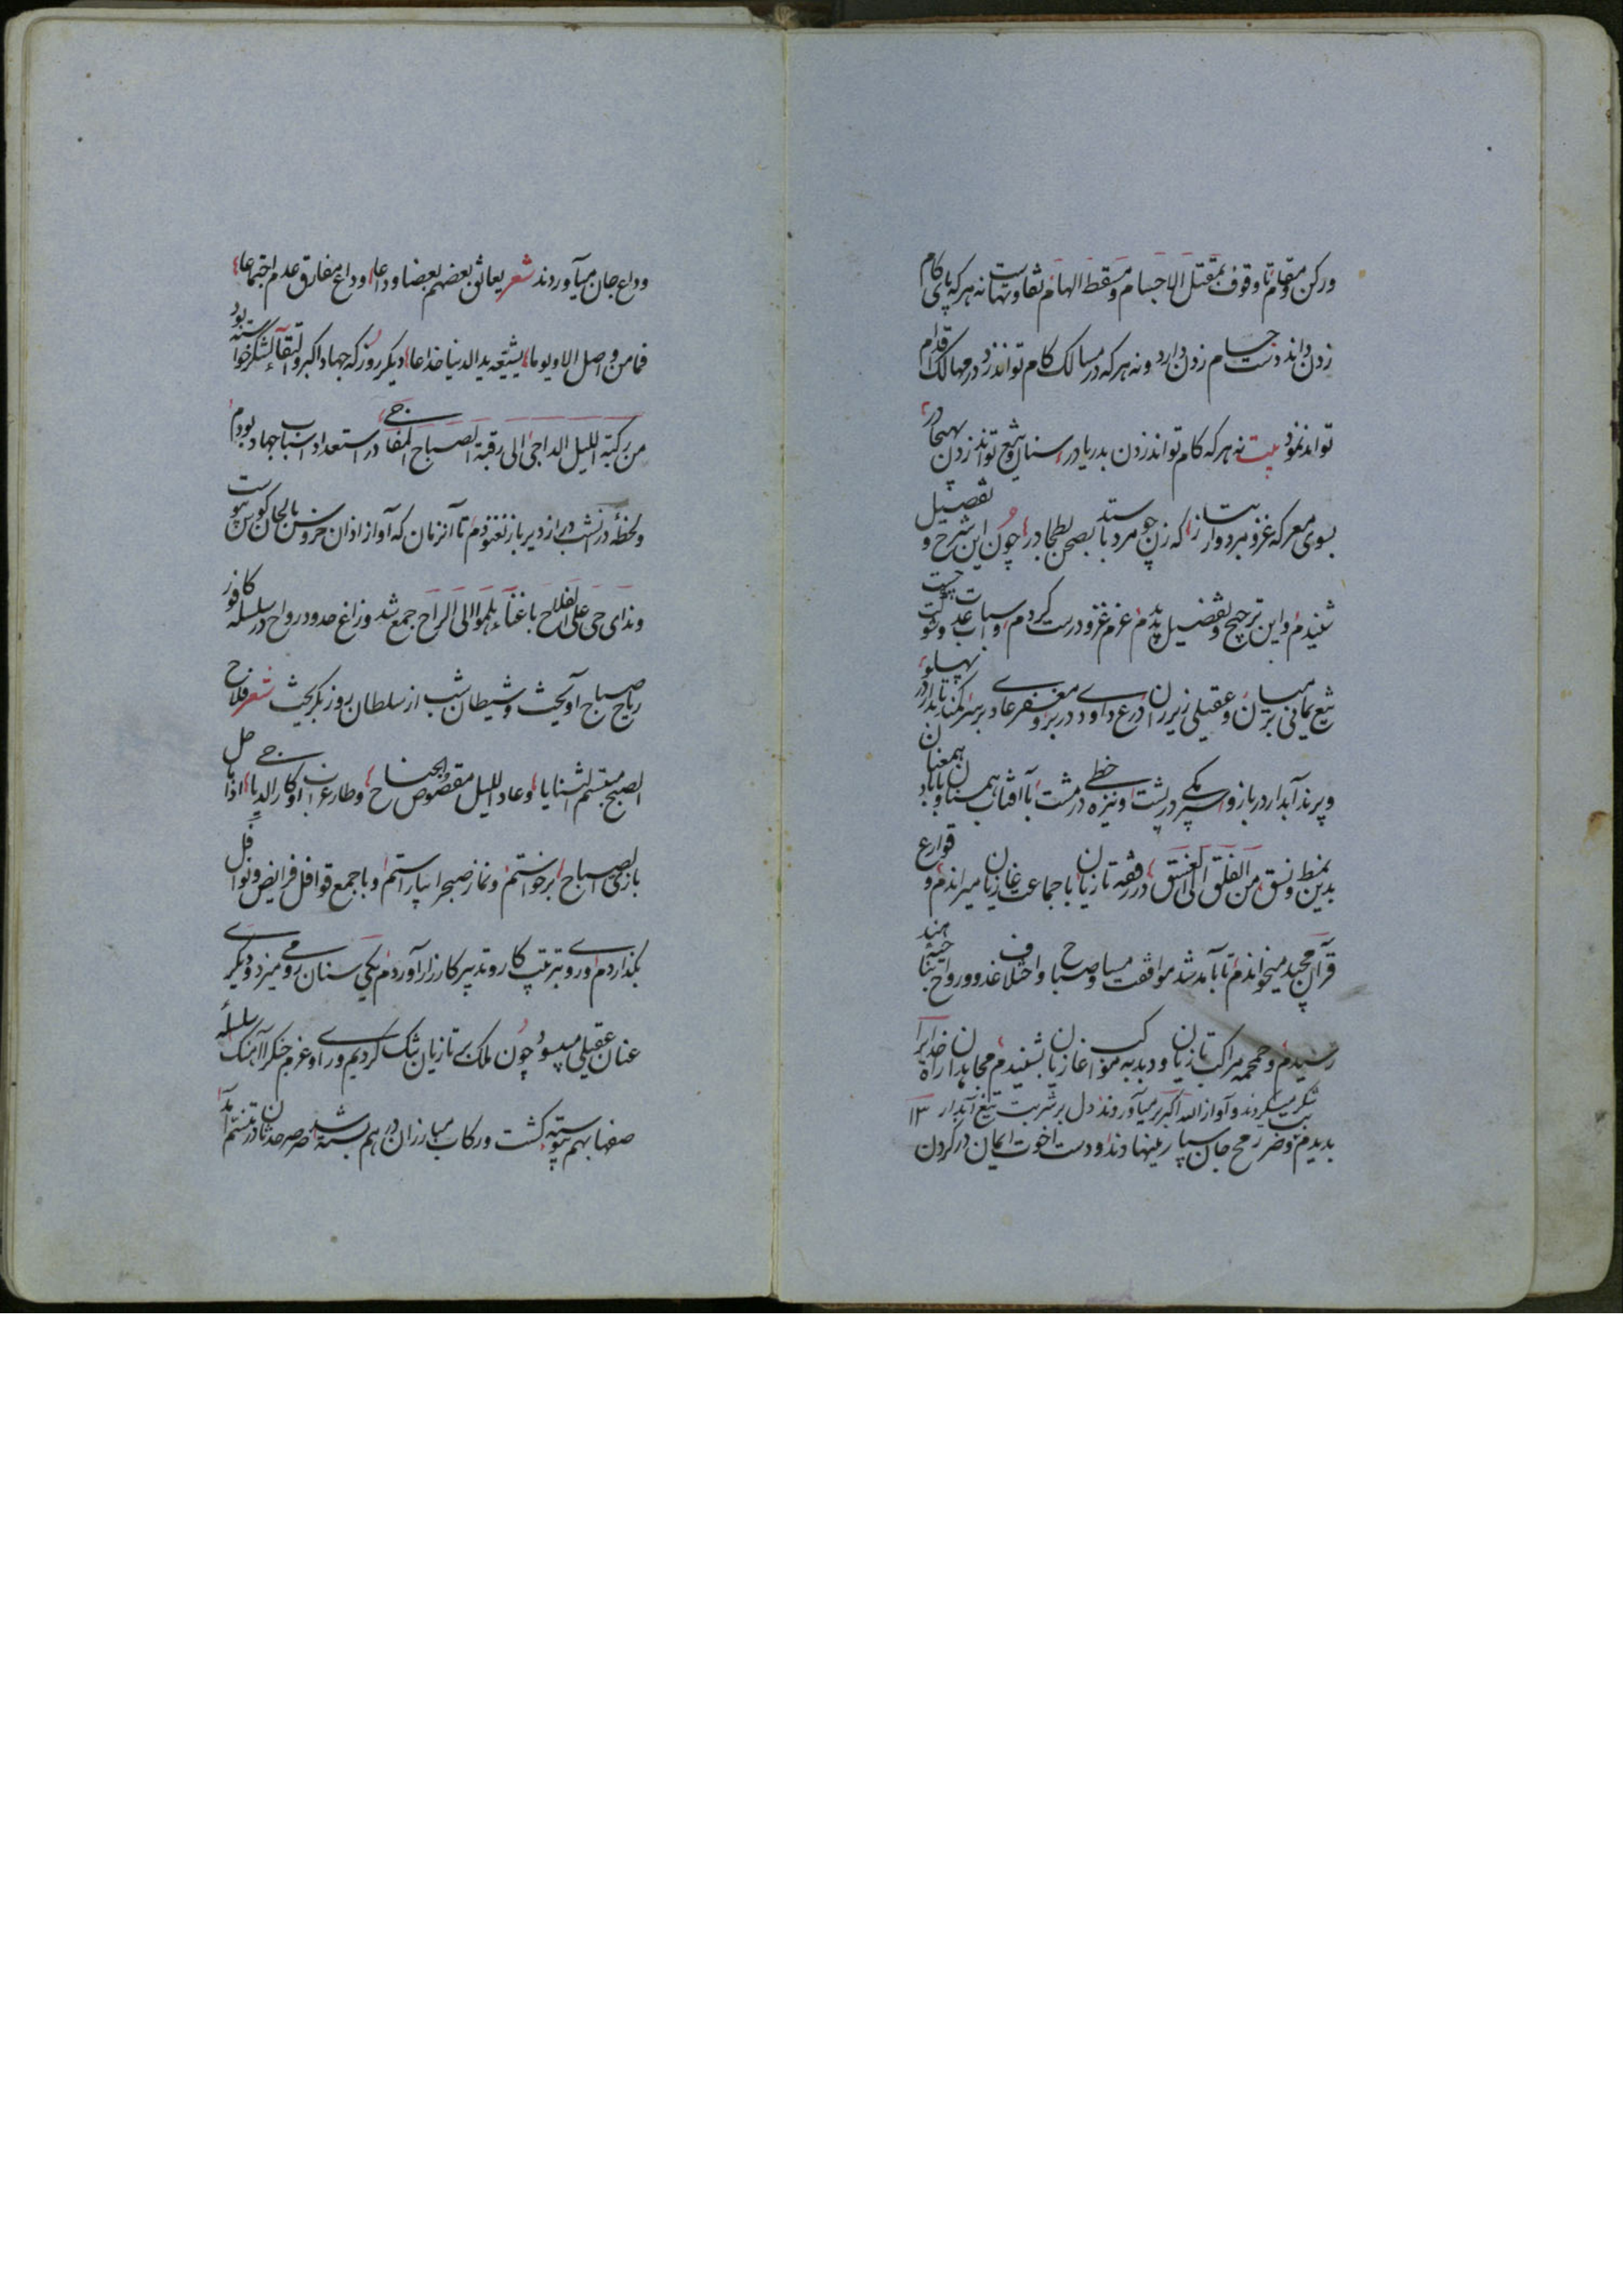 ورکن و مقام تا وقوف بمقتل الاجسام و مسقط الهام تفاوتهاست نه هرکه پای کام
زدن داند دست حسام زدن دارد و نه هرکه در مسالک کام تواند زد در مهالک اقدام
تواند نمود بیت نه هرکه کام تواند زدن بدریا در سنان و تیغ تواند زدن بهیجا در
بسوی معرکه غزو مرد وار بتاز که زن چو مرد بایستد بصحن بطحا در چون این شرح و تفصیل
شنیدم و این ترجیح و تفضیل بدیدم عزم غزو درست کردم و اسباب عدت چست و
تیغ یمانی بر میان و عقیلی زیر ران درع داودی در بر و مغفر عادی بر سر کمند تابدار در پهلو
و پرند آبدار در بازو اسپر مکی در پشت و نیزه خطی در مشت با آفتاب همسنان و با باد همعنان
بدین نمط و نسق من الفلق الی الغسق در رفقه تازیان با جماعت غازیان میراندم و قوارع
قرآن مجید میخواندم تا بآمد شد موافقت مسا و صباح و اختلاف غدو و رواح بتناحیه هند
رسیدم و حمحمه مراکب تازیان و دبدبه مواکب غازیان بشنیدم مجاهدان راه خدایرا
بدیدم
شکر میکردند و آواز الله اکبر بر میآوردند دل بر شربت تیغ آبدار
و ضرب رمح جان سپار مینهادند و دست اخوت ایمان در گردن
وداع جان میآوردند شعر یعانق بعضهم بعضا وداعا وداع مفارق عدم اجتماعا
فما من واصل الا ویوما یشیعه ید الدنیا خداعا دیگر روز که جهاد اکبر و التقاء لشکر خواسته بود
من رکبة اللیل الداجی الی رقبة الصباح المفاجی در استعداد اسباب جهاد بودم
و لحظهٔ در آن شب دراز دیر باز نغنودم تا آنزمان که آواز اذان خروس بالحان کوس پیوست
و ندای حی علی الفلاح با غناء هلموا الی الراح جمع شد و زاغ حدود رواح در سلسله کافور
ریاح صباح آویخت و شیطان شب از سلطان روز بگریخت شعر فلاح
الصبح مبتسم الثنایا و عاد اللیل مقصوص الجناح و طار غراب اوکار الدیاجی اذا ما حل
بازی الصباح برخواستم و نماز صبح را بیاراستم و با جمع قوافل فرایض و نوافل
بگذاردم و روی بترتیب کار و تدبیر کارزار آوردم یکی سنان رومی میزد و دیگری
عنان عقیلی میپسود چون ملک بر تازیان تنگ کردیم و رای و عزم جنگ را آهنگ سلسله
صفها بهم پیوسته گشت و رکاب مبارزان در هم بسته شد صرصر حدثان در تنسم آمد